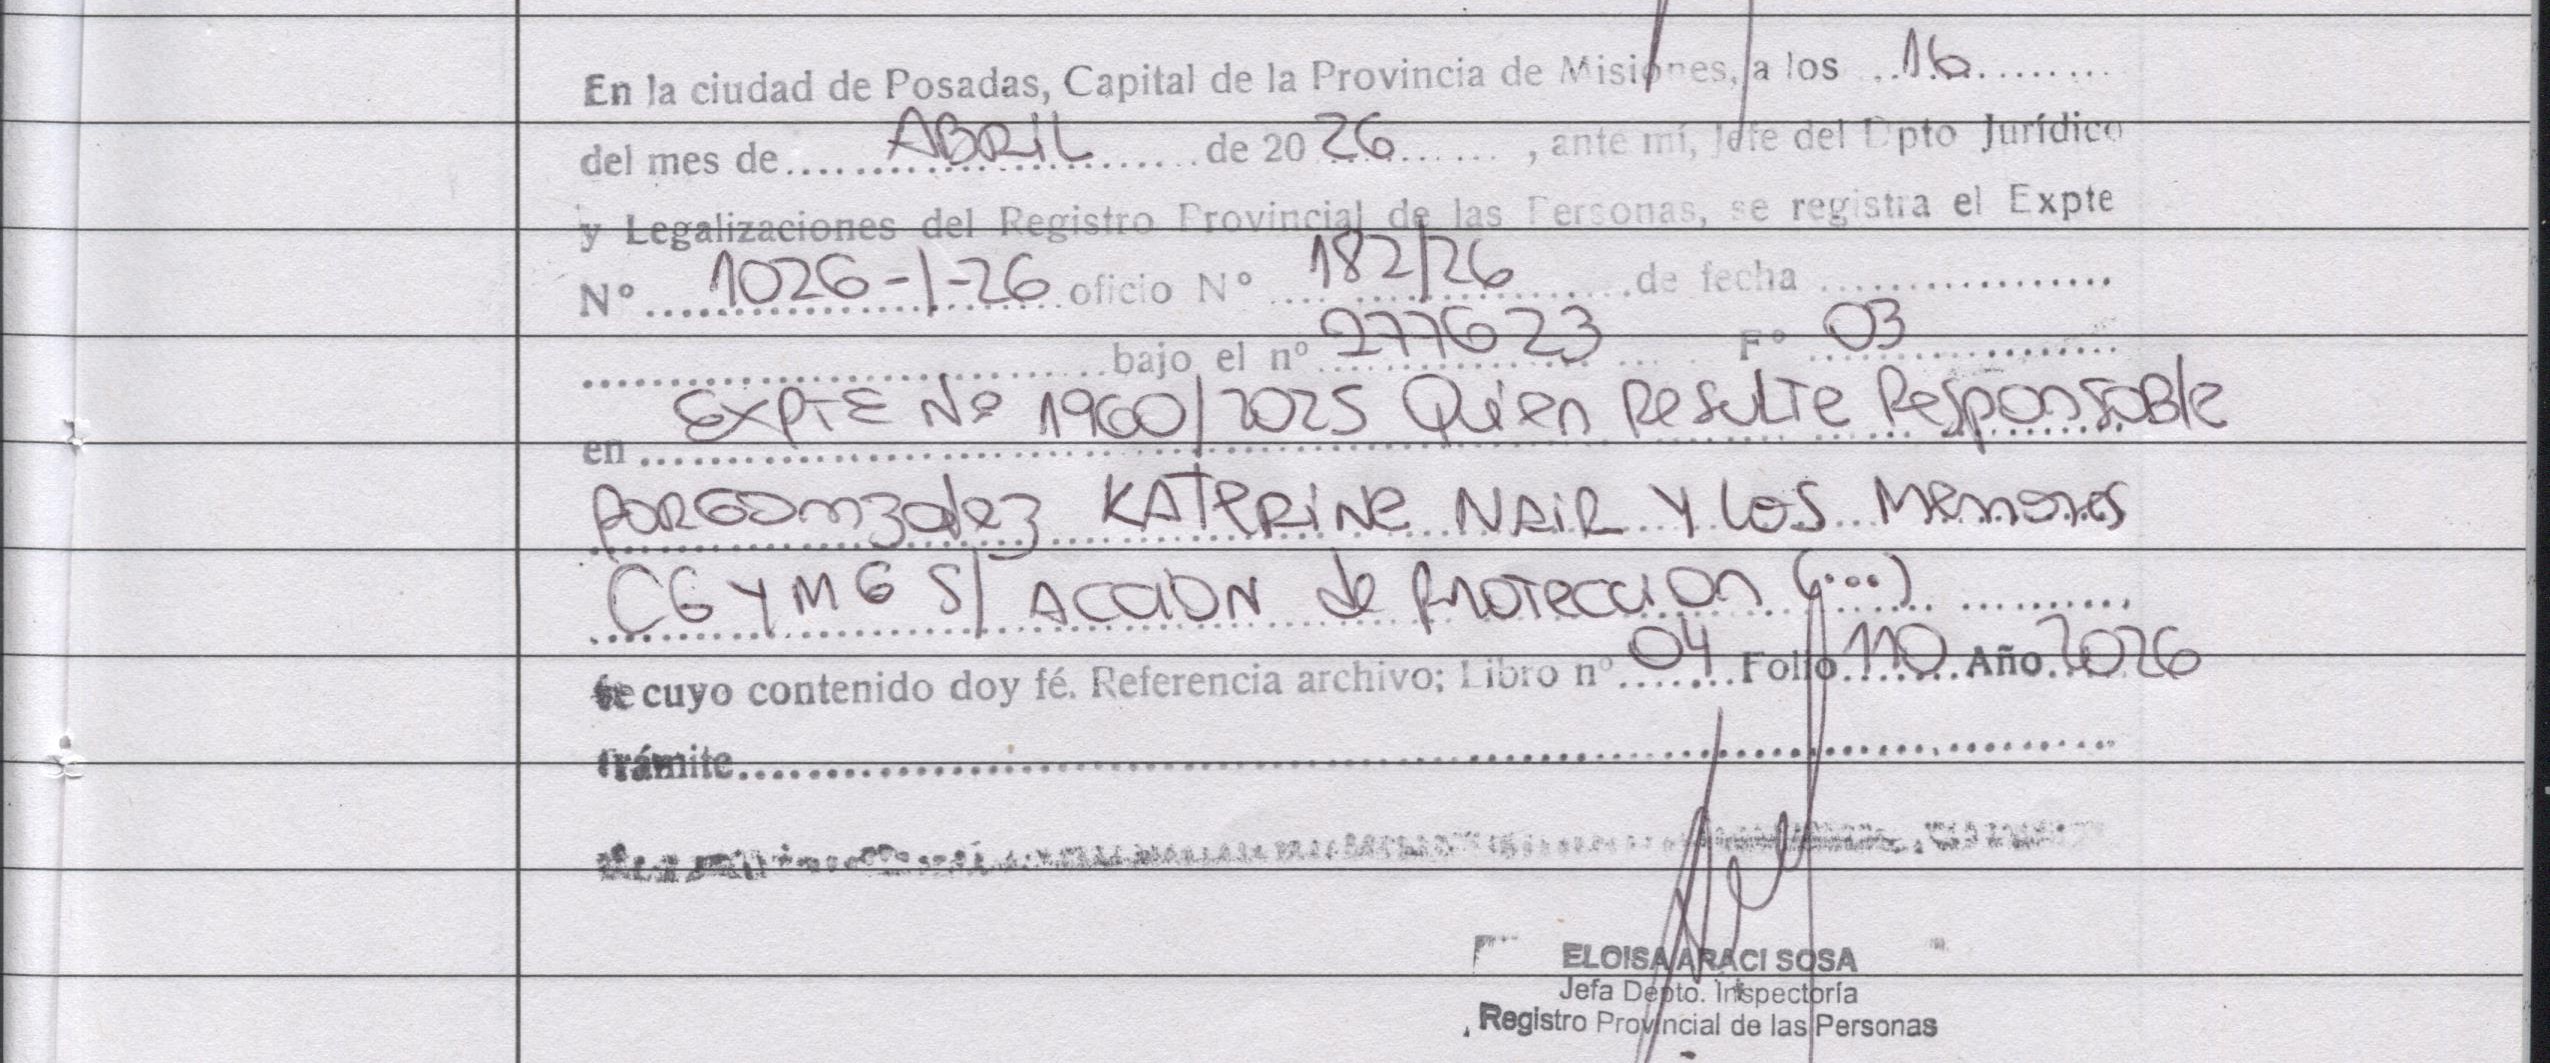 En la ciudad de Posadas, Capital de la Provincia de Misiones, a los ... 16 ..........
del mes de ........ ABRIL ........ de 20 26 ........ , ante mí, Jefe del Dpto Jurídico
y Legalizaciones del Registro Provincial de las Personas, se registra el Expte
Nº ........ 1026-I-26 oficio Nº .... 182/26 ........ de fecha .................
.............................. bajo el nº 277623 .... Fº 03 ........
en EXPTE Nº 1960/2025 Quien Resulte Responsable
POR GOnzalez KATERINE NAIR Y LOS Menores
CG Y MG S/ ACCION de PROTECCION (...) ..........
cuyo contenido doy fé. Referencia archivo; Libro nº 04 Folio 110 Año 2026
trámite..............................
ELOISA ARACI SOSA
Jefa Depto. Inspectoría
Registro Provincial de las Personas